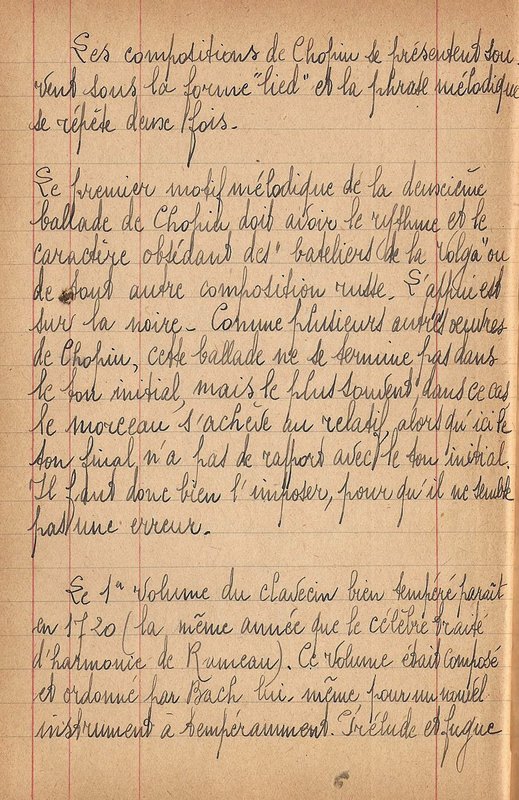 Les compositions de Chopin se présentent sou-
vent sous la forme "lied" et la phrase mélodique
se répète deuxe fois.
Le premier motif mélodique de la deuxcième
ballade de Chopin doit avoir le rythme et le
caractère obsédant des "bateliers de la Volga" ou
de tout autre composition russe. L'appui est
sur la noire. Comme plusieurs autres oeuvres
de Chopin, cette ballade ne se termine pas dans
le ton initial, mais le plus souvent, dans ce cas
le morceau s'achève au relatif, alors qu'ici le
ton final n'a pas de rapport avec le ton initial.
Il faut donc bien l'imposer, pour qu'il ne semble
pas une erreur.
Le 1er volume du clavecin bien tempéré paraît
en 1720 (la même année que le célèbre traité
d'harmonie de Rameau). Ce volume était composé
et ordonné par Bach lui-même pour un nouvel
instrument à tempéramment. Prélude et fugue